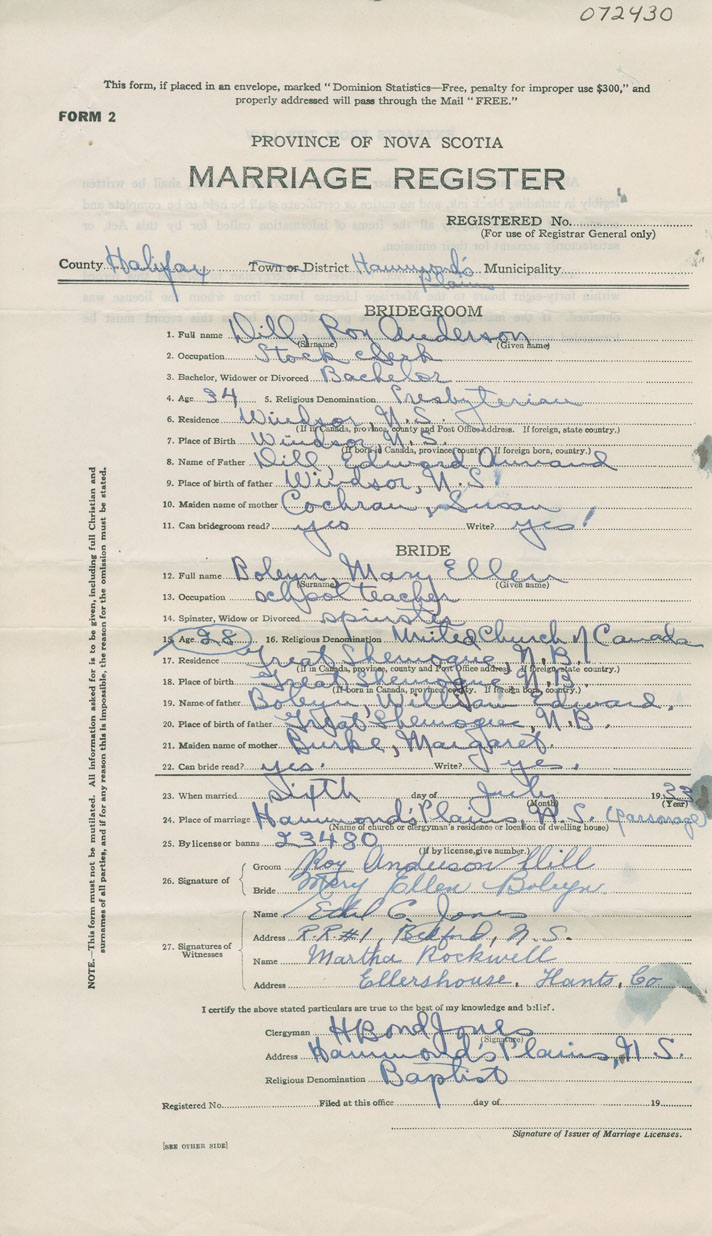 072430
This form, if placed in an envelope, marked "Dominion Statistics—Free, penalty for improper use $300," and
properly addressed will pass through the Mail "FREE."
FORM 2
PROVINCE OF NOVA SCOTIA
MARRIAGE REGISTER
REGISTERED No.
(For use of Registrar General only)
County Halifax Town or District Hammond's Plains Municipality
BRIDEGROOM
1. Full name Dill, Roy Anderson
(Surname) (Given name)
2. Occupation Stock clerk
3. Bachelor, Widower or Divorced Bachelor
4. Age 34 5. Religious Denomination Presbyterian
6. Residence Windsor, N.S.
(If in Canada, province, county and Post Office address. If foreign, state country.)
7. Place of Birth Windsor N.S.
(If born in Canada, province, county. If foreign born, country.)
8. Name of Father Dill, Edward Armand
9. Place of birth of father Windsor, N.S.
10. Maiden name of mother Cochran, Susan
11. Can bridegroom read? yes Write? yes!
BRIDE
12. Full name Boleyn, Mary Ellen
(Surname) (Given name)
13. Occupation school teacher
14. Spinster, Widow or Divorced spinster
15. Age 28 16. Religious Denomination United Church of Canada
17. Residence Great Shemogue, N.B.
(If in Canada, province, county and Post Office address. If foreign, state country.)
18. Place of birth Great Shemogue, N.B.
(If born in Canada, province, county. If foreign born, country.)
19. Name of father Boleyn, William Edward.
20. Place of birth of father Great Shemogue, N.B.
21. Maiden name of mother Burke, Margaret.
22. Can bride read? yes. Write? yes.
23. When married Sixth day of July 19
(Month) (Year)
24. Place of marriage Hammond's Plains, N.S. (parsonage)
(Name of church or clergyman's residence or location of dwelling house)
25. By license or banns 23480
(If by license, give number.)
26. Signature of Groom Roy Anderson Dill
Bride Mary Ellen Boleyn
27. Signatures of Witnesses Name Ethel C. Jones
Address R.R.#1, Bedford, N.S.
Name Martha Rockwell
Address Ellershouse, Hants, Co
I certify the above stated particulars are true to the best of my knowledge and belief.
Clergyman H Bond Jones
(Signature)
Address Hammond's Plains, N.S.
Religious Denomination Baptist
Registered No. Filed at this office day of 19
Signature of Issuer of Marriage Licenses.
[SEE OTHER SIDE]
NOTE.—This form must not be mutilated. All information asked for is to be given, including full Christian and
surnames of all parties, and if for any reason this is impossible, the reason for the omission must be stated.